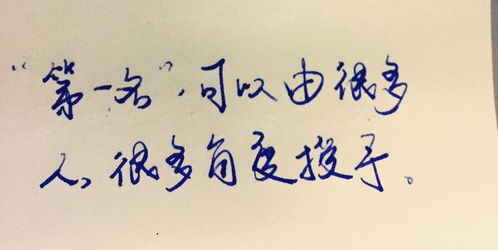 “第一名”，可以由很多
人、很多角度授予。